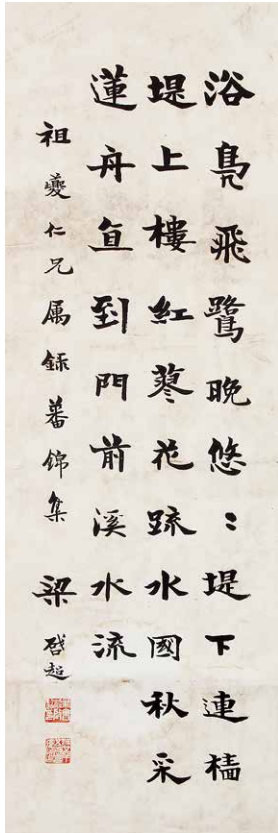 浴鳧飛鷺晚悠〻堤下連檣
堤上樓紅蓼花疏水國秋采
蓮舟直到門前溪水流
祖夔仁兄属錄蕃錦集 梁啓超